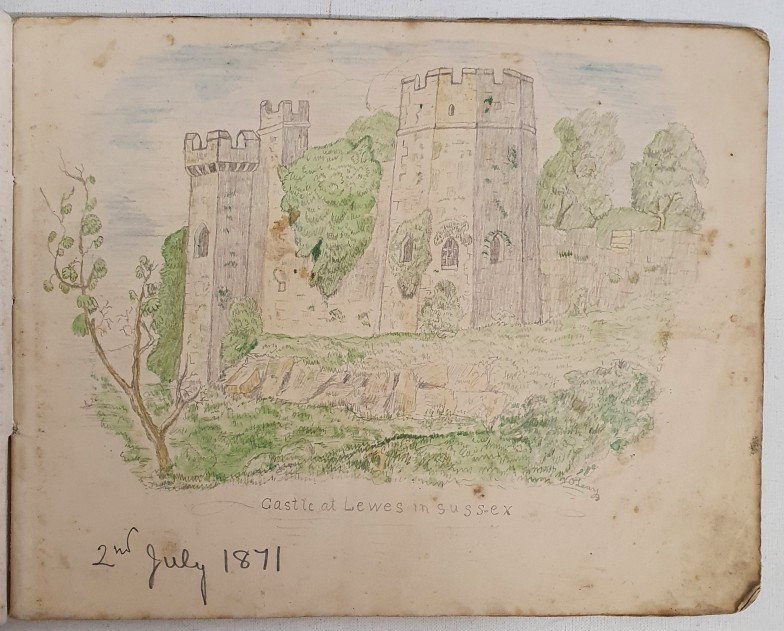 Castle at Lewes in sussex
2nd July 1871